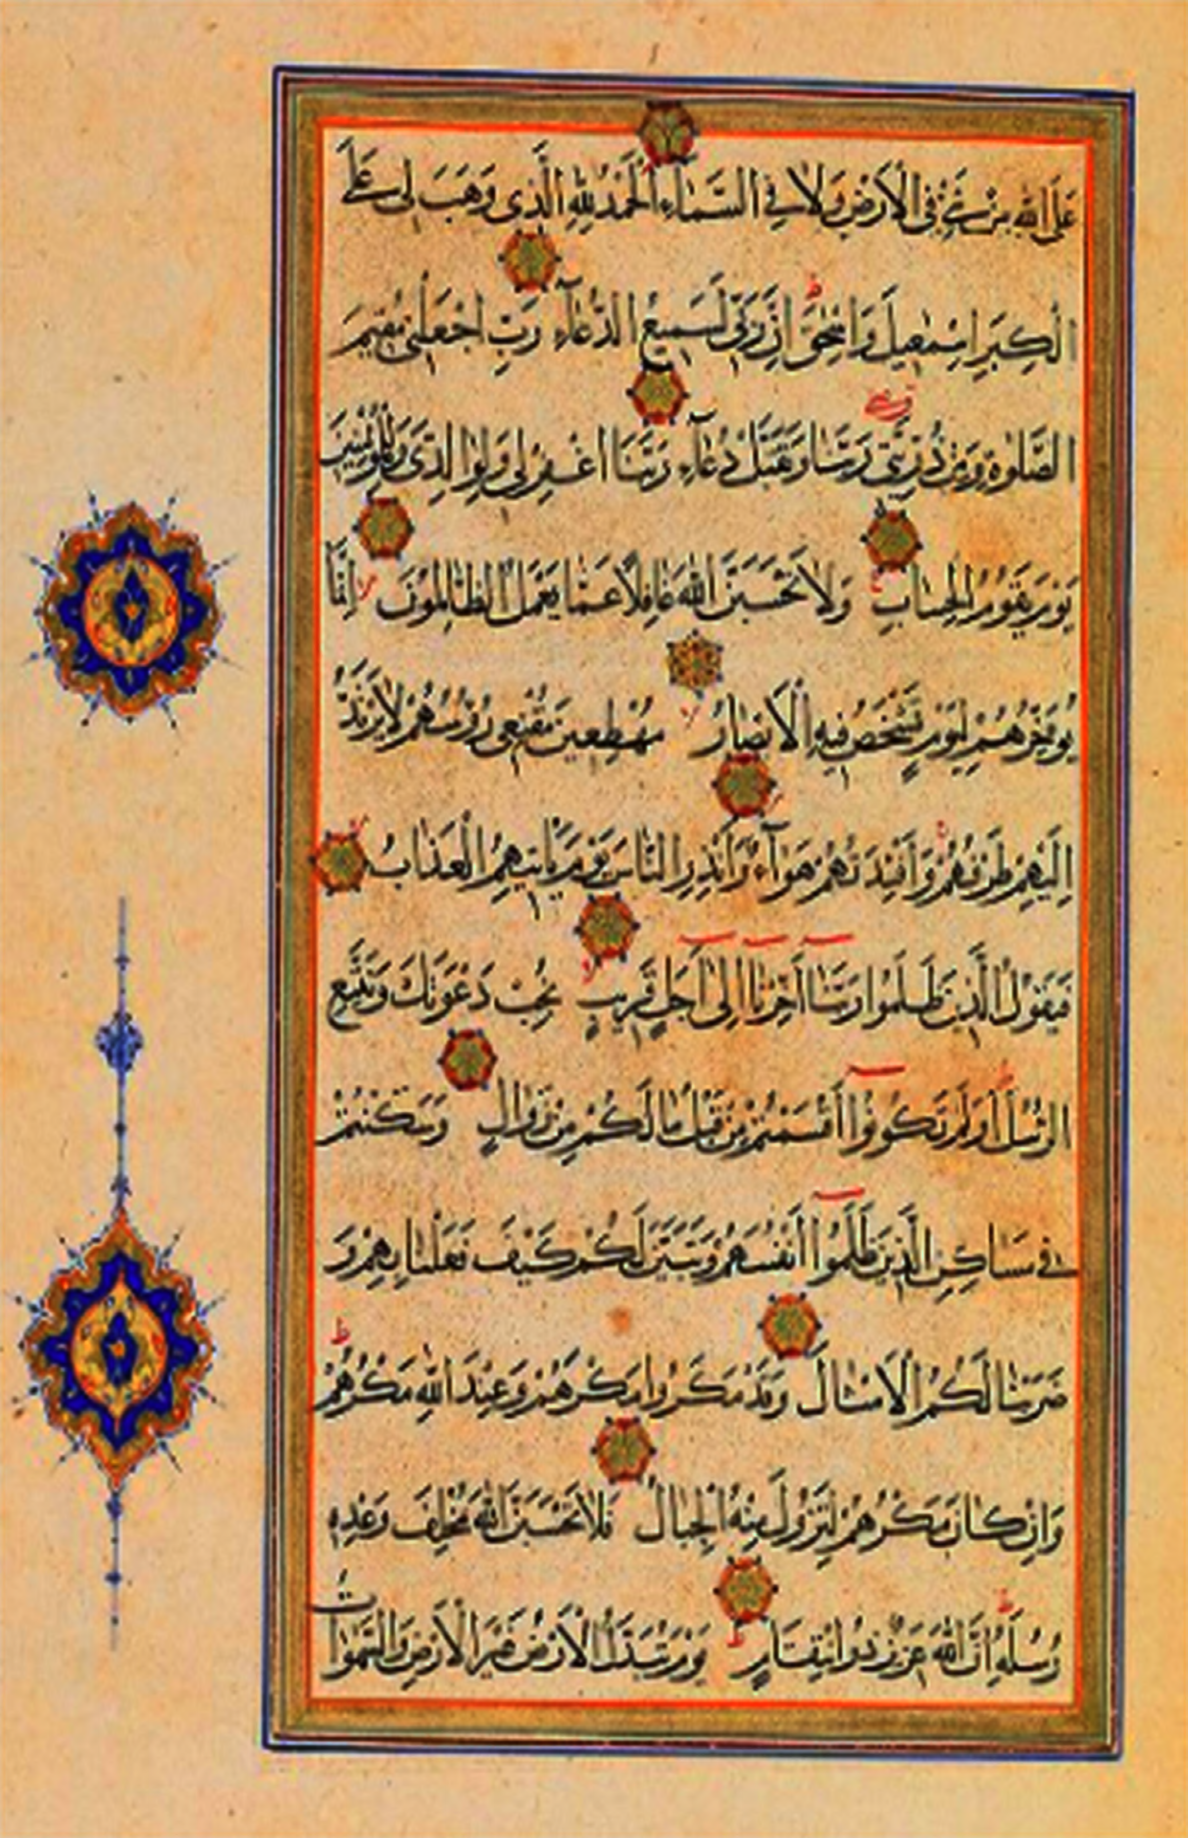 عَلَى اللهِ مِنْ شَيْءٍ فِى الْاَرْضِ وَلَا فِى السَّمَآءِ اَلْحَمْدُ لِلّٰهِ الَّذِى وَهَبَ لِى عَلَى
الْكِبَرِ اِسْمٰعِيلَ وَاِسْحٰقَ ط اِنَّ رَبِّى لَسَمِيعُ الدُّعَآءِ رَبِّ اجْعَلْنِى مُقِيمَ
الصَّلٰوةِ وَمِنْ ذُرِّيَّتِى رَبَّنَا وَتَقَبَّلْ دُعَآءِ رَبَّنَا اغْفِرْلِى وَلِوٰالِدَىَّ وَلِلْمُؤْمِنِينَ
يَوْمَ يَقُومُ الْحِسٰابُ وَلَا تَحْسَبَنَّ اللهَ غَافِلًا عَمَّا يَعْمَلُ الظّٰالِمُونَ لا اِنَّمَا
يُؤَخِّرُهُمْ لِيَوْمٍ تَشْخَصُ فِيهِ الْاَبْصٰارُ لا مُهْطِعِينَ مُقْنِعِى رُؤُسِهِمْ لَا يَرْتَدُّ
اِلَيْهِمْ طَرْفُهُمْ وَاَفْئِدَتُهُمْ هَوَآءٌ وَاَنْذِرِ النّٰاسَ يَوْمَ يَأْتِيهِمُ الْعَذَابُ
فَيَقُولُ الَّذِينَ ظَلَمُوا رَبَّنَا اَخِّرْنَا اِلٰى اَجَلٍ قَرِيبٍ لا نُجِبْ دَعْوَتَكَ وَنَتَّبِعِ
الرُّسُلَ ط اَوَلَمْ تَكُونُوا اَقْسَمْتُمْ مِنْ قَبْلُ مٰا لَكُمْ مِنْ زَوٰالٍ وَسَكَنْتُمْ
فِى مَسٰاكِنِ الَّذِينَ ظَلَمُوا اَنْفُسَهُمْ وَتَبَيَّنَ لَكُمْ كَيْفَ فَعَلْنٰا بِهِمْ وَ
ضَرَبْنٰا لَكُمُ الْاَمْثٰالَ وَقَدْ مَكَرُوا مَكْرَهُمْ وَعِنْدَ اللهِ مَكْرُهُمْ ط
وَاِنْ كٰانَ مَكْرُهُمْ لِتَزُولَ مِنْهُ الْجِبٰالُ فَلَا تَحْسَبَنَّ اللهَ مُخْلِفَ وَعْدِهِ
رُسُلَهُ ط اِنَّ اللهَ عَزِيزٌ ذُوانْتِقٰامٍ ط يَوْمَ تُبَدَّلُ الْاَرْضُ غَيْرَ الْاَرْضِ وَالسَّمٰوٰاتُ